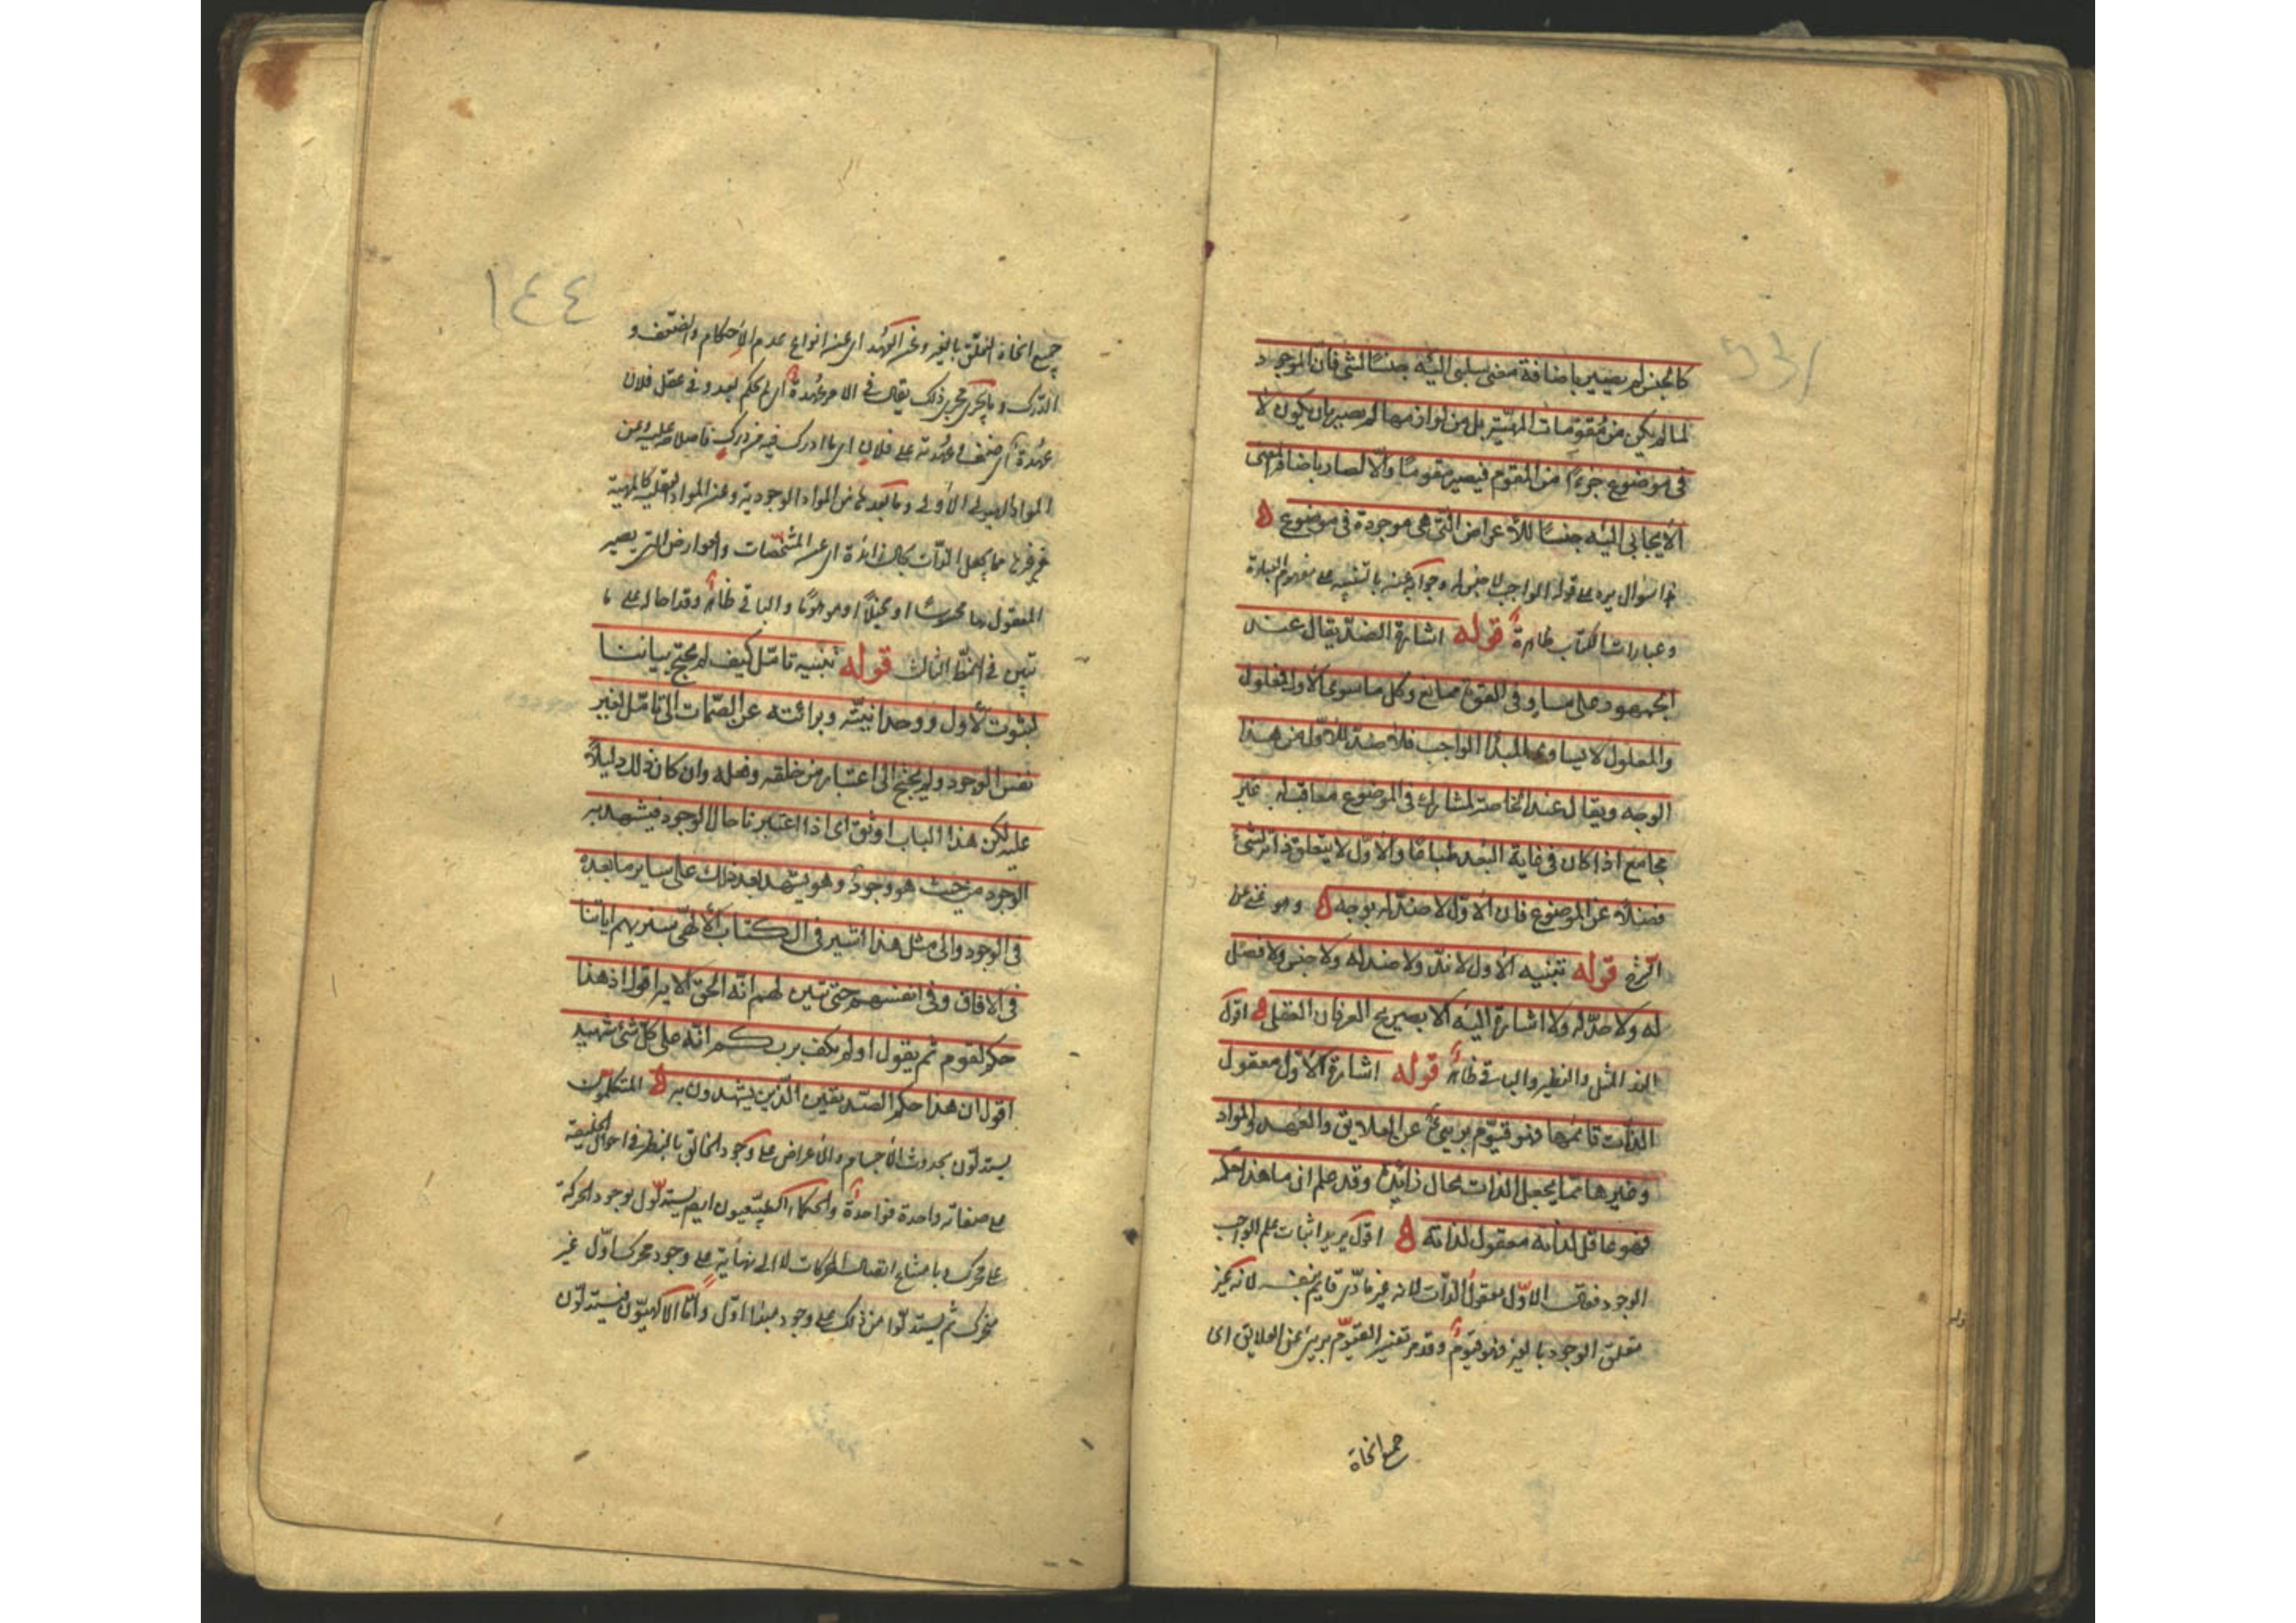 كالجنس لم يصيير باضافة معنى سلبى اليه جنسًا لشئ فان الموجود
لما لم يكن من مقومات المهيّة بل من لوازمها لم يصير بان يكون لا
فى موضوع جزءًا من المقوم فيصير مقومًا والا لصار باضافة المعنى
الايجابى اليه جنسًا للأعراض التى هى موجودة فى موضوع ه
هذا سوال يرد على قوله الواجب لا جنس له وجوابه عنه بالتنبيه على مفهوم العبارة
وعبارات الكتاب ظاهرة قوله اشارة الضد يقال عند
الجمهور على مساو فى القوة ممانع وكل ما سوى الاول فمعلول
والمعلول لا يساوى المبدأ الواجب فلا ضد للاول من هذا
الوجه ويقال عند الخاصة لمشارك فى الموضوع معاقب له غير
مجامع اذا كان فى غاية البعد طباعًا والاول لا يتعلق ذاته بشئ
فضلًا عن الموضوع فان الاول لا ضد له بوجه ه وهو غنى عن
الشرح قوله تنبيه الاول لا ندّ ولا ضد له ولا جنس ولا فصل
له ولا حدّ له ولا اشارة اليه الا بصريح العرفان العقلى ه اقول
الند المثل والنظير والباقى ظاهر قوله اشارة الاول معقول
الذات قائمها فهو قيّوم برىئ عن العلايق والعهد والمواد
وغيرها مما يجعل الذات بحال زايدة وقد علم ان ما هذا حكمه
فهو عاقل لذاته معقول لذاته ه اقول يريد اثبات علم الواجب
الوجود فقال الاول معقول الذات لانه غير مادى قايم بنفسه لانه غير
متعلق الوجود بالغير فهو قيّوم وقد مر تفسير القيّوم برىئ عن العلايق اى
جميع انحاء
١٤٤
جميع انحاء التعلق بالغير وعن العُهَد اى عن انواع عدم الاحكام والضعف و
الدرك وما يجرى مجرى ذلك يقال فى الامر عُهدة اى لم يحكم بعد وفى عقل فلان
عُهدة اى ضعف وعُهدته على فلان اى ما ادرك فيه من درك فاصلاحه عليه وعن
المواد اى الهيولى الاولى وما بعدها من المواد الوجودية وعن المواد العقلية كالمهية
وغيرها مما يجعل الذات بحال زايدة اى عن المشخصات والعوارض التى يصير
المعقول بها محسوسًا او مخيلًا او موهومًا والباقى ظاهر وقد احاله على ما
تبين فى النمط الثالث قوله تنبيه تامّل كيف لم يحتج بياننا
لثبوت الاول ووحدانيته وبرائته عن الصمات الى تامّل لغير
نفس الوجود ولم يحتج الى اعتبار من خلقه وفعله وان كان ذلك دليلًا
عليه لكن هذا الباب اوثق اى اذا اعتبرنا حال الوجود فيشهد به
الوجود من حيث هو وجود وهو يشهد بعد ذلك على ساير ما بعده
فى الوجود والى مثل هذا اشير فى الكتاب الالهى سنريهم اياتنا
فى الافاق وفى انفسهم حتى تبين لهم انه الحق الاية اقول اذ هذا
حكم لقوم ثم يقول اولم يكف بربك انه على كل شئ شهيد
اقول ان هذا حكم الصديقين الذين يشهدون به ه المتكلمون
يستدلون بحدوث الاجسام والاعراض على وجود الخالق بالنظر فى احوال الخليقة
على صفاته واحدة فواحدة والحكماء الطبيعيون ايضا يستدلون بوجود الحركة
على محرك وبامتناع اتصال المحركات لا الى نهاية على وجود محرك اول غير
متحرك ثم يستدلون من ذلك على وجود مبدا اول واما الالهيون فيستدلون